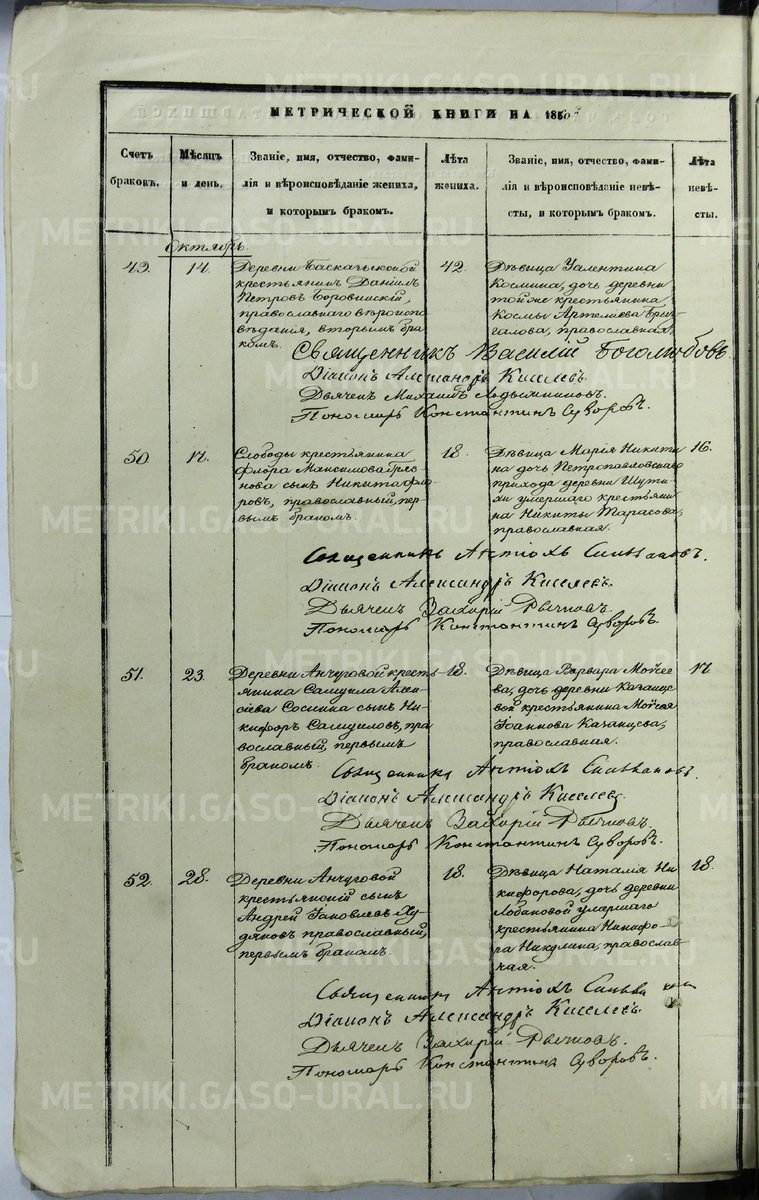 МЕТРИЧЕСКОЙ КНИГИ НА 1860
Счетъ браковъ.
Мѣсяцъ и день.
Званіе, имя, отчество, фами-
лія и вѣроисповѣданіе жениха,
и которымъ бракомъ.
Лѣта жениха.
Званіе, имя, отчество, фами-
лія и вѣроисповѣданіе невѣ-
сты, и которымъ бракомъ.
Лѣта невѣ-
сты.
Октябрь.
49.
14.
Деревни
крестьянинъ Даніилъ
Петровъ Боровинскій,
православнаго вѣроиспо
вѣданія, вторымъ бра
комъ.
42.
Дѣвица Уалентина
Космина, дочь деревни
тойже крестьянина
Космы Артеміева
православная.
Священникъ Василій Боголюбовъ.
Діаконъ Александръ Киселевъ.
Дьячекъ Михаилъ
Пономарь Константинъ Суворовъ.
50.
17.
Слободы крестьянина
Флора Максимова
нова сынъ Никита Фло
ровъ, православный, пер
вымъ бракомъ.
18.
Дѣвица Марія Никити
на дочь Петропавловскаго
прихода деревни Шути
хи умершаго крестьяни
на Никиты Тарасова,
православная.
16.
Священникъ Антіохъ Сильвановъ.
Діаконъ Александръ Киселевъ.
Дьячекъ Захарій Рычковъ.
Пономарь Константинъ Суворовъ.
51.
23.
Деревни Анчуговой кресть
янина Самуила Алек
сіева Соснина сынъ Ни
кифоръ Самуиловъ, пра
вославный, первымъ
бракомъ.
18.
Дѣвица Варвара Мойсее
ва, дочь деревни Казанце
вой крестьянина Мойсея
Іоаннова Казанцева,
православная.
17
Священникъ Антіохъ Сильвановъ.
Діаконъ Александръ Киселевъ.
Дьячекъ Захарій Рычковъ.
Пономарь Константинъ Суворовъ.
52.
28.
Деревни Анчуговой
крестьянскій сынъ
Андрей Іаковлевъ Ху-
дяковъ православный,
первымъ бракомъ.
18.
Дѣвица Наталія Ни
кифорова, дочь деревни
Лобановой умершаго
крестьянина Никифо-
ра Никулина, православ-
ная.
18.
Священникъ Антіохъ
Діаконъ Александръ Киселевъ.
Дьячекъ Захарій Рычковъ.
Пономарь Константинъ Суворовъ.
METRIKI.GASO-URAL.RU